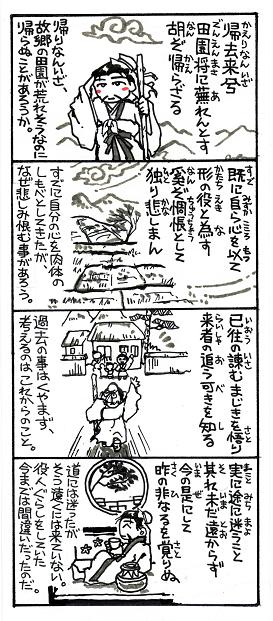 かえりなんいざ
帰去来兮
でんえんまさ あ
田園将に蕪れんとす
なん かえ
胡ぞ帰らざる
帰りなんいざ、
故郷の田園が荒れそうなのに
帰らぬことがあろうか。
すで みずか こころ もっ
既に自ら心を以て
かたち えき な
形の役と為す
なん ちゅうちょう
奚ぞ惆悵として
ひと かな
独り悲しまん
すでに自分の心を肉体の
しもべとしてきたが、
なぜ悲しみ恨む事があろう。
いおう いさ さと
已往の諫むまじきを悟り
らいしゃ お べ し
来者の追う可きを知る
過去の事はくやまず、
考えるのは、これからのこと。
まこと みち まよ
実に途に迷うこと
そ いま とお
其れ未だ遠からず
いま ぜ
今の是にして
さく ひ さと
昨の非なるを覚りぬ。
道には迷ったが
そう遠くには来ていない。
役人ぐらしをしていた
今までは間違いだったのだ。